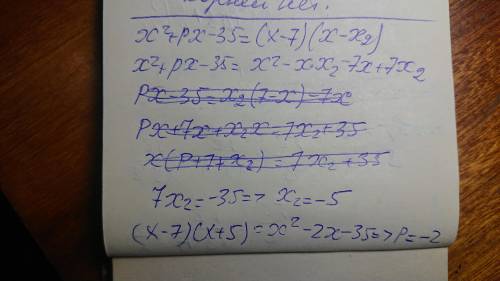 корней нет.
x²+px-35=(x-7)(x-x₂)
x²+px-35=x²-x·x₂-7x+7x₂
px-35=x₂(7-x)-7x
px+7x+x₂x=7x₂+35
x(p+7+x₂)=7x₂+35
7x₂=-35=> x₂=-5
(x-7)(x+5)=x²-2x-35=>p=-2